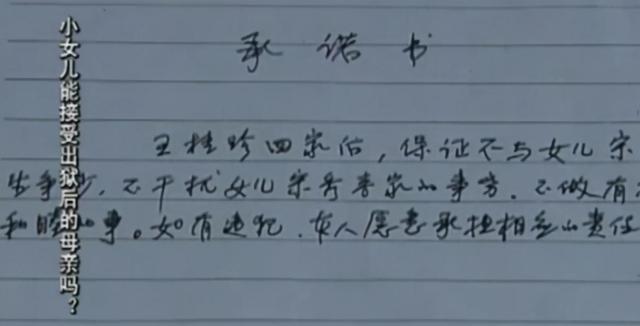 小女儿能接受出狱后的母亲吗?
承诺书
王桂珍回家后,保证不与女儿宋
生争吵,不干扰女儿宋家的事务.不做有
和睦的事。如有违犯.本人愿意承担相应的责任